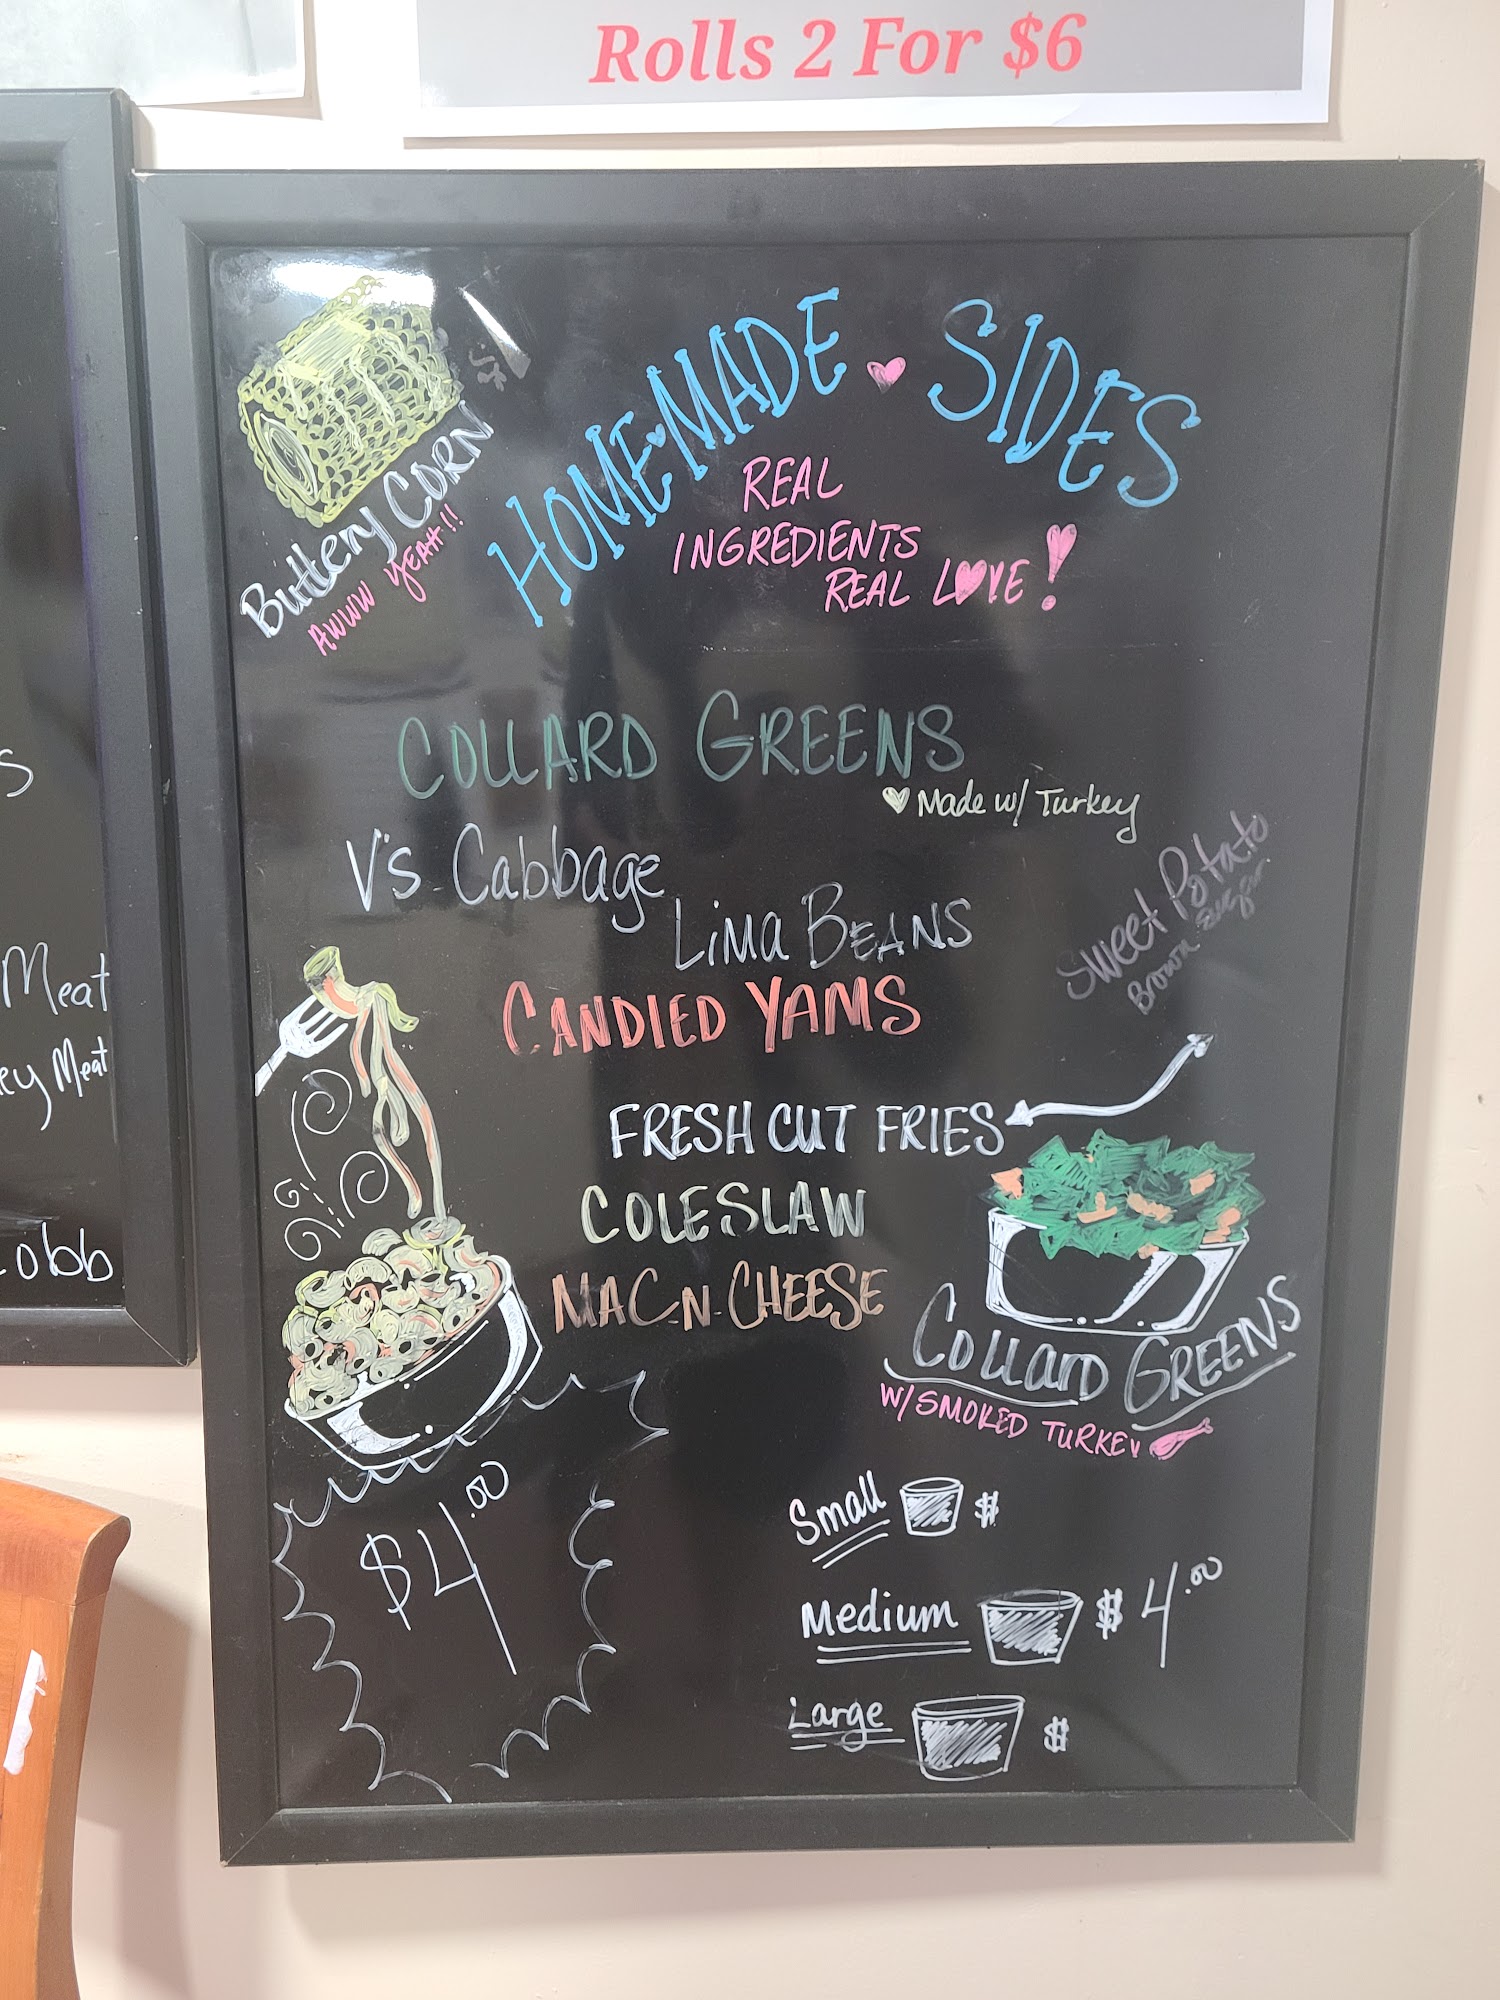 Rolls 2 For $6
HOMEMADE SIDES
REAL
INGREDIENTS
REAL LOVE!
Buttery CORN
AWWW YEAH!!!
COLLARD GREENS
Made w/ Turkey
V's Cabbage
LiMa BEANS
CANDIED YAMS
Sweet Potato
Brown Sugar
FRESH CUT FRIES
COLESLAW
MAC-N-CHEESE
COLLARD GREENS
W/SMOKED TURKEY
$4.00
Small $
Medium $4.00
Large $
s
Meat
ey Meat
Cobb